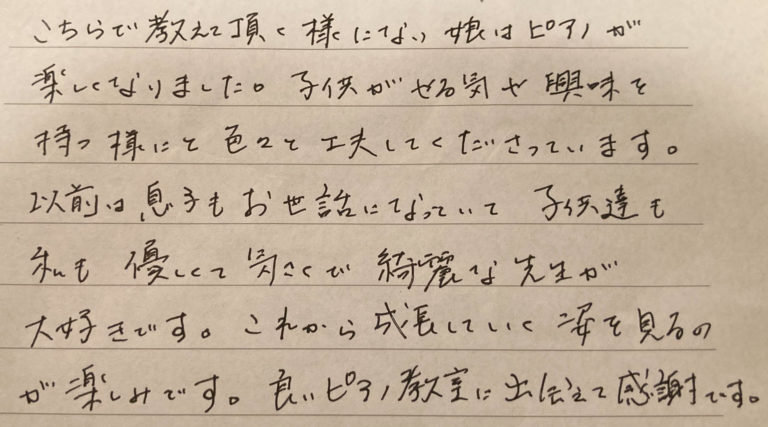 こちらで教えて頂く様になり娘はピアノが
楽しくなりました。子供がやる気や興味を
持つ様にと色々と工夫してくださっています。
以前は息子もお世話になっていて 子供達も
私も 優しくて気さくで 綺麗な先生が
大好きです。これから成長していく姿を見るの
が楽しみです。良いピアノ教室に出会えて感謝です。